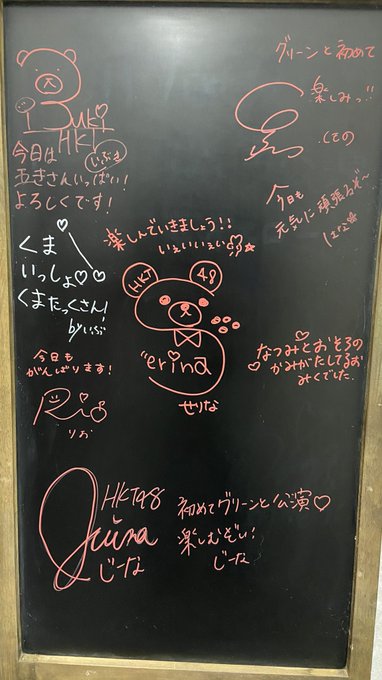 Ibuki
HKT
いぶき
今日は
お客さんいっぱい!
よろしくです!
グリーンと初めて
楽しみっ!!
今日も
元気に頑張るぞ〜
くま
いっしょ♡♡
くまたっくさん!
by いぶ
楽しんでいきましょう!!
いえいいえい
HKT 48
"erina
せりな
なつみとおそろの
かみがたしてるお
みくでした。
今日も
がんばります!
Rio
りお
HKT48
Juina
じーな
初めてグリーンと公演♡
楽しむぞい!
じーな